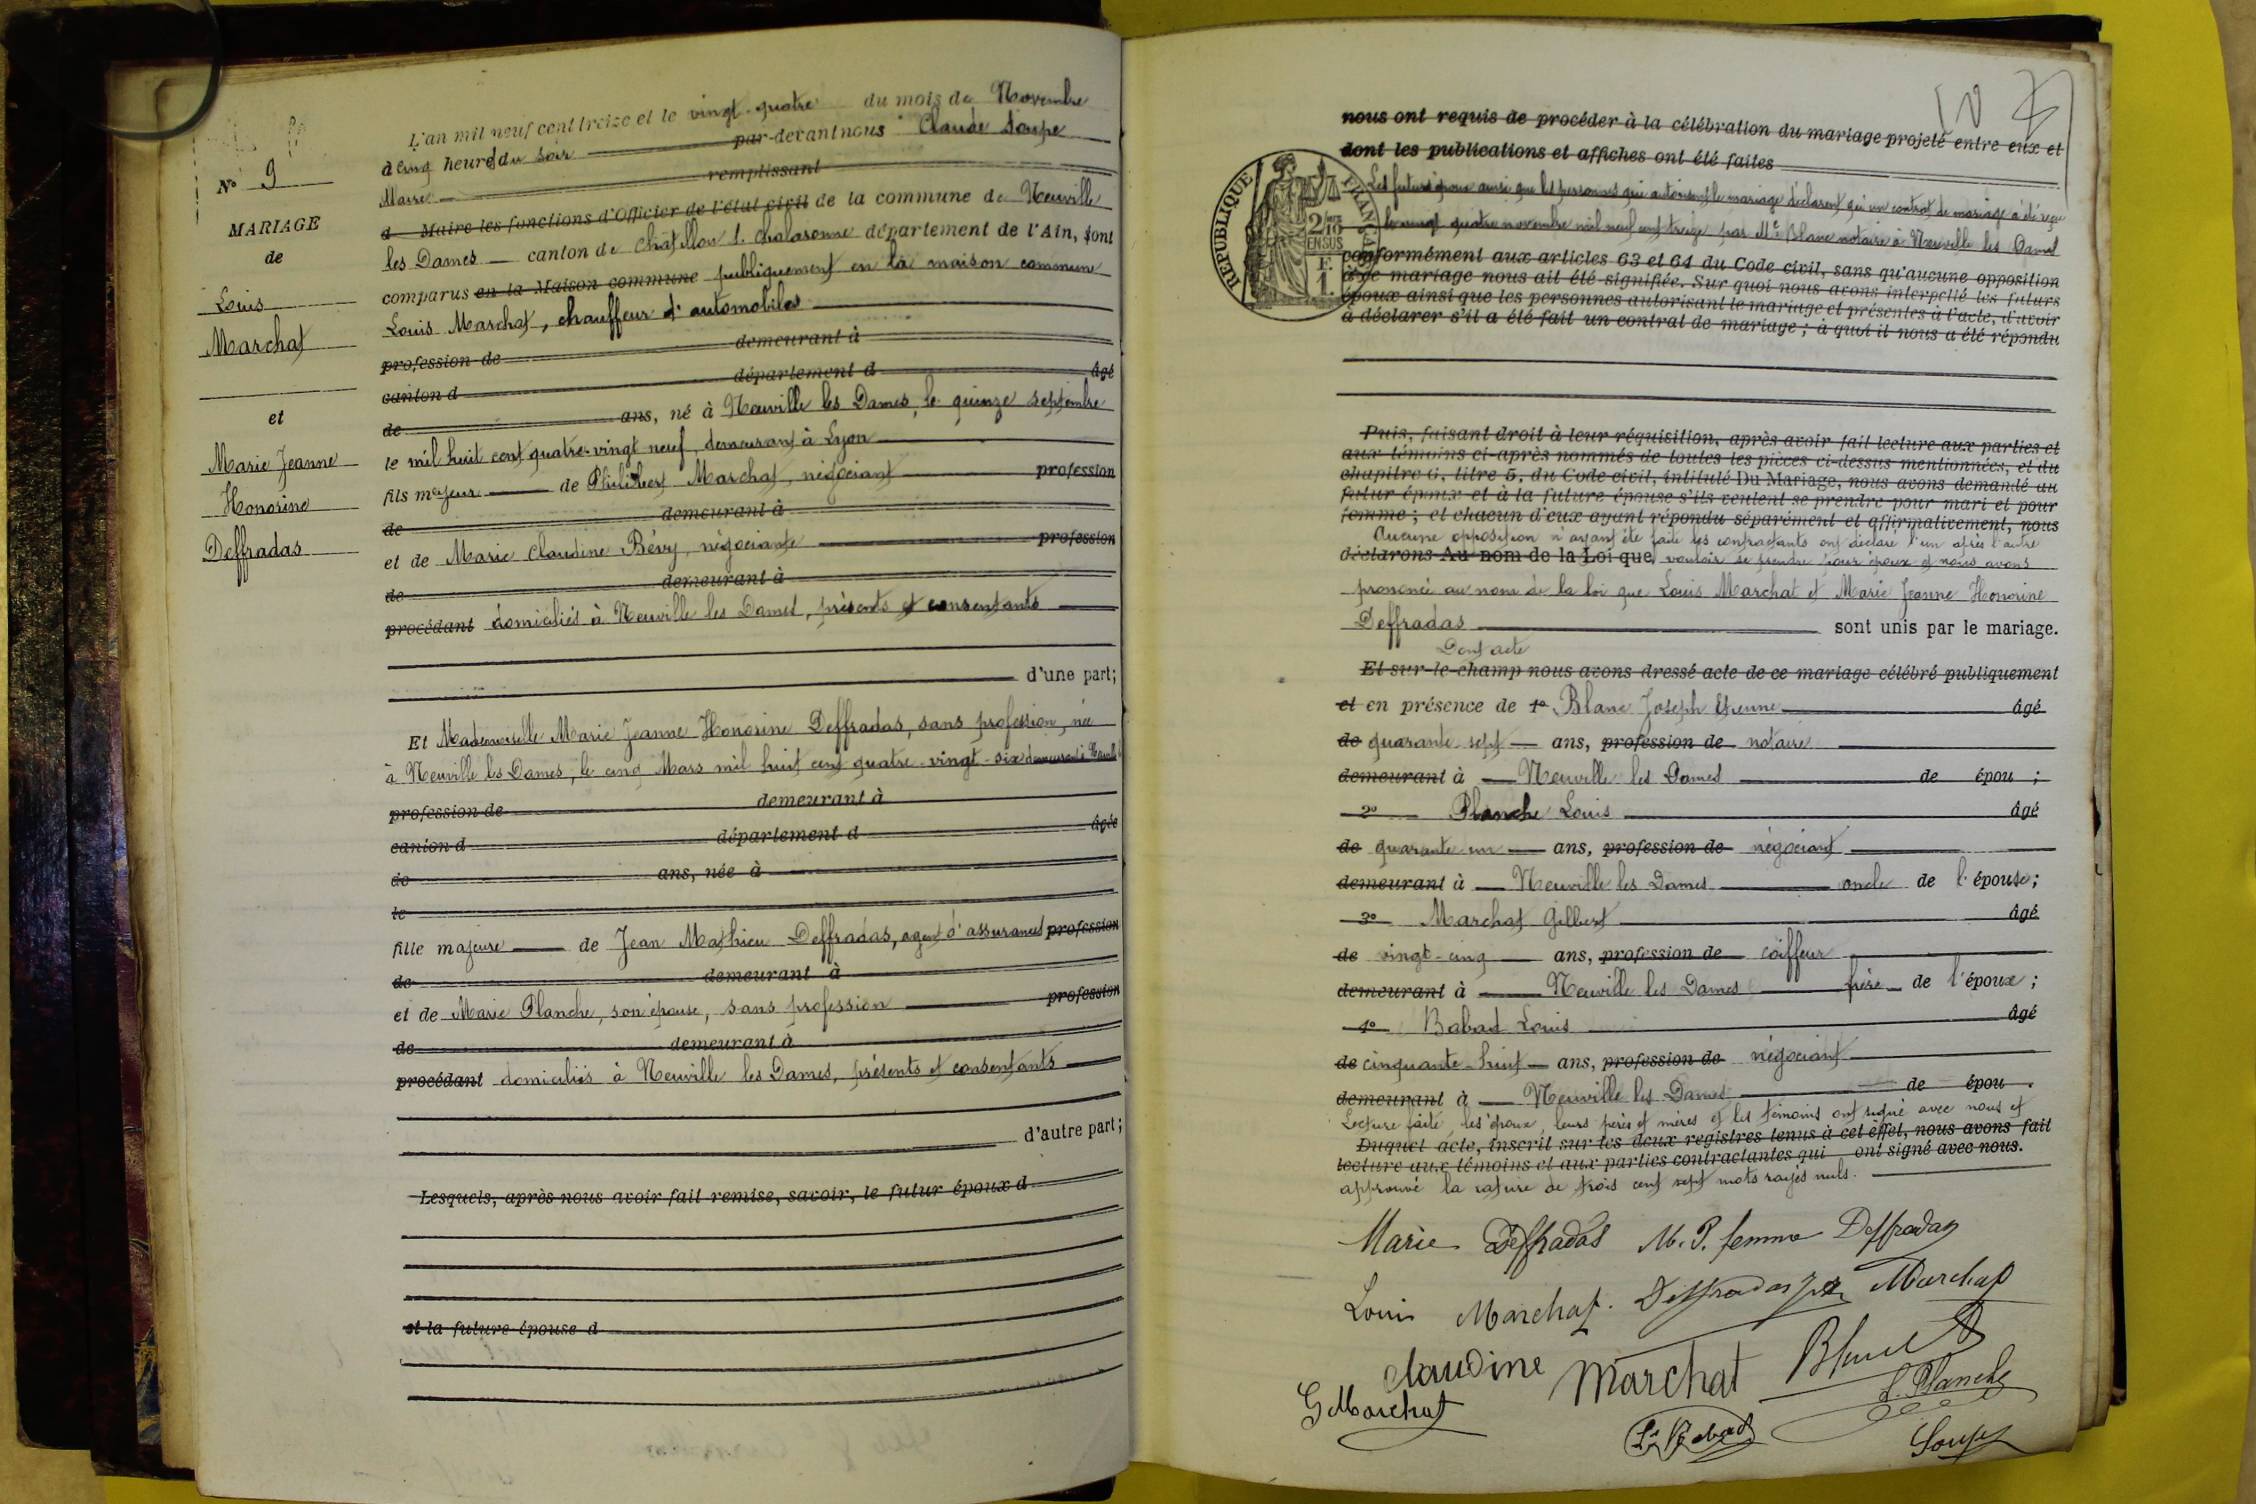 N° 9
MARIAGE
de
Louis
Marchat
et
Marie Jeanne
Honorine
Deffradas
L'an mil neuf cent treize et le vingt-quatre du mois de Novembre
à cinq heures du soir par-devant nous Claude Soupe
Maire remplissant
d Maire les fonctions d'Officier de l'état civil de la commune de Neuville
les Dames canton de Châtillon s. Chalaronne département de l'Ain, sont
comparus en la Maison commune publiquement en la maison commune
Louis Marchat, chauffeur d'automobiles
profession de demeurant à
canton d département d âgé
de ans, né à Neuville les Dames, le quinze septembre
le mil huit cent quatre-vingt neuf, demeurant à Lyon
fils majeur de Philibert Marchat, négociant profession
de demeurant à
et de Marie Claudine Bévy, négociante profession
de demeurant à
procédant domiciliés à Neuville les Dames, présents et consentants
d'une part;
Et Mademoiselle Marie Jeanne Honorine Deffradas, sans profession, née
à Neuville les Dames, le cinq Mars mil huit cent quatre-vingt-six demeurant à Neuville
profession de demeurant à
canton d département d âgée
de ans, née à
le
fille majeure de Jean Mathieu Deffradas, agent d'assurances profession
de demeurant à
et de Marie Planche, son épouse, sans profession profession
de demeurant à
procédant domiciliés à Neuville les Dames, présents et consentants
d'autre part;
Lesquels, après nous avoir fait remise, savoir, le futur époux d
et la future épouse d
nous ont requis de procéder à la célébration du mariage projeté entre eux et
dont les publications et affiches ont été faites
Les futurs époux ainsi que les personnes qui autorisent le mariage déclarent qu'un contrat de mariage a été reçu
le vingt quatre novembre mil neuf cent treize par Me Blanc notaire à Neuville les Dames
REPUBLIQUE FRANÇAISE
2/10 EN SUS
F. 1.
conformément aux articles 63 et 64 du Code civil, sans qu'aucune opposition
à ce mariage nous ait été signifiée. Sur quoi nous avons interpellé les futurs
époux ainsi que les personnes autorisant le mariage et présentes à l'acte, d'avoir
à déclarer s'il a été fait un contrat de mariage; à quoi il nous a été répondu
Puis, faisant droit à leur réquisition, après avoir fait lecture aux parties et
aux témoins ci-après nommés de toutes les pièces ci-dessus mentionnées, et du
chapitre 6, titre 5, du Code civil, intitulé Du Mariage, nous avons demandé au
futur époux et à la future épouse s'ils veulent se prendre pour mari et pour
femme; et chacun d'eux ayant répondu séparément et affirmativement, nous
Aucune opposition n'ayant été faite les contractants ont déclaré l'un après l'autre
déclarons Au nom de la Loi que vouloir se prendre pour époux et nous avons
prononcé au nom de la loi que Louis Marchat et Marie Jeanne Honorine
Deffradas sont unis par le mariage.
Dont acte
Et sur-le-champ nous avons dressé acte de ce mariage célébré publiquement
et en présence de 1° Blanc Joseph Etienne âgé
de quarante sept ans, profession de notaire
demeurant à Neuville les Dames de épou ;
2° Planche Louis âgé
de quarante un ans, profession de négociant
demeurant à Neuville les Dames oncle de l'épouse;
3° Marchat Gilbert âgé
de vingt-cinq ans, profession de coiffeur
demeurant à Neuville les Dames frère de l'époux;
4° Babad Louis âgé
de cinquante-huit ans, profession de négociant
demeurant à Neuville les Dames de épou .
Lecture faite, les époux, leurs pères et mères et les témoins ont signé avec nous et
Duquel acte, inscrit sur les deux registres tenus à cet effet, nous avons fait
lecture aux témoins et aux parties contractantes qui ont signé avec nous.
approuvé la rature de trois cent sept mots rayés nuls.
Marie Deffradas M. P. femme Deffradas
Louis Marchat. Deffradas Marchat
Claudine Marchat Blanc
G Marchat L. Planche
Ls Babad Soupe